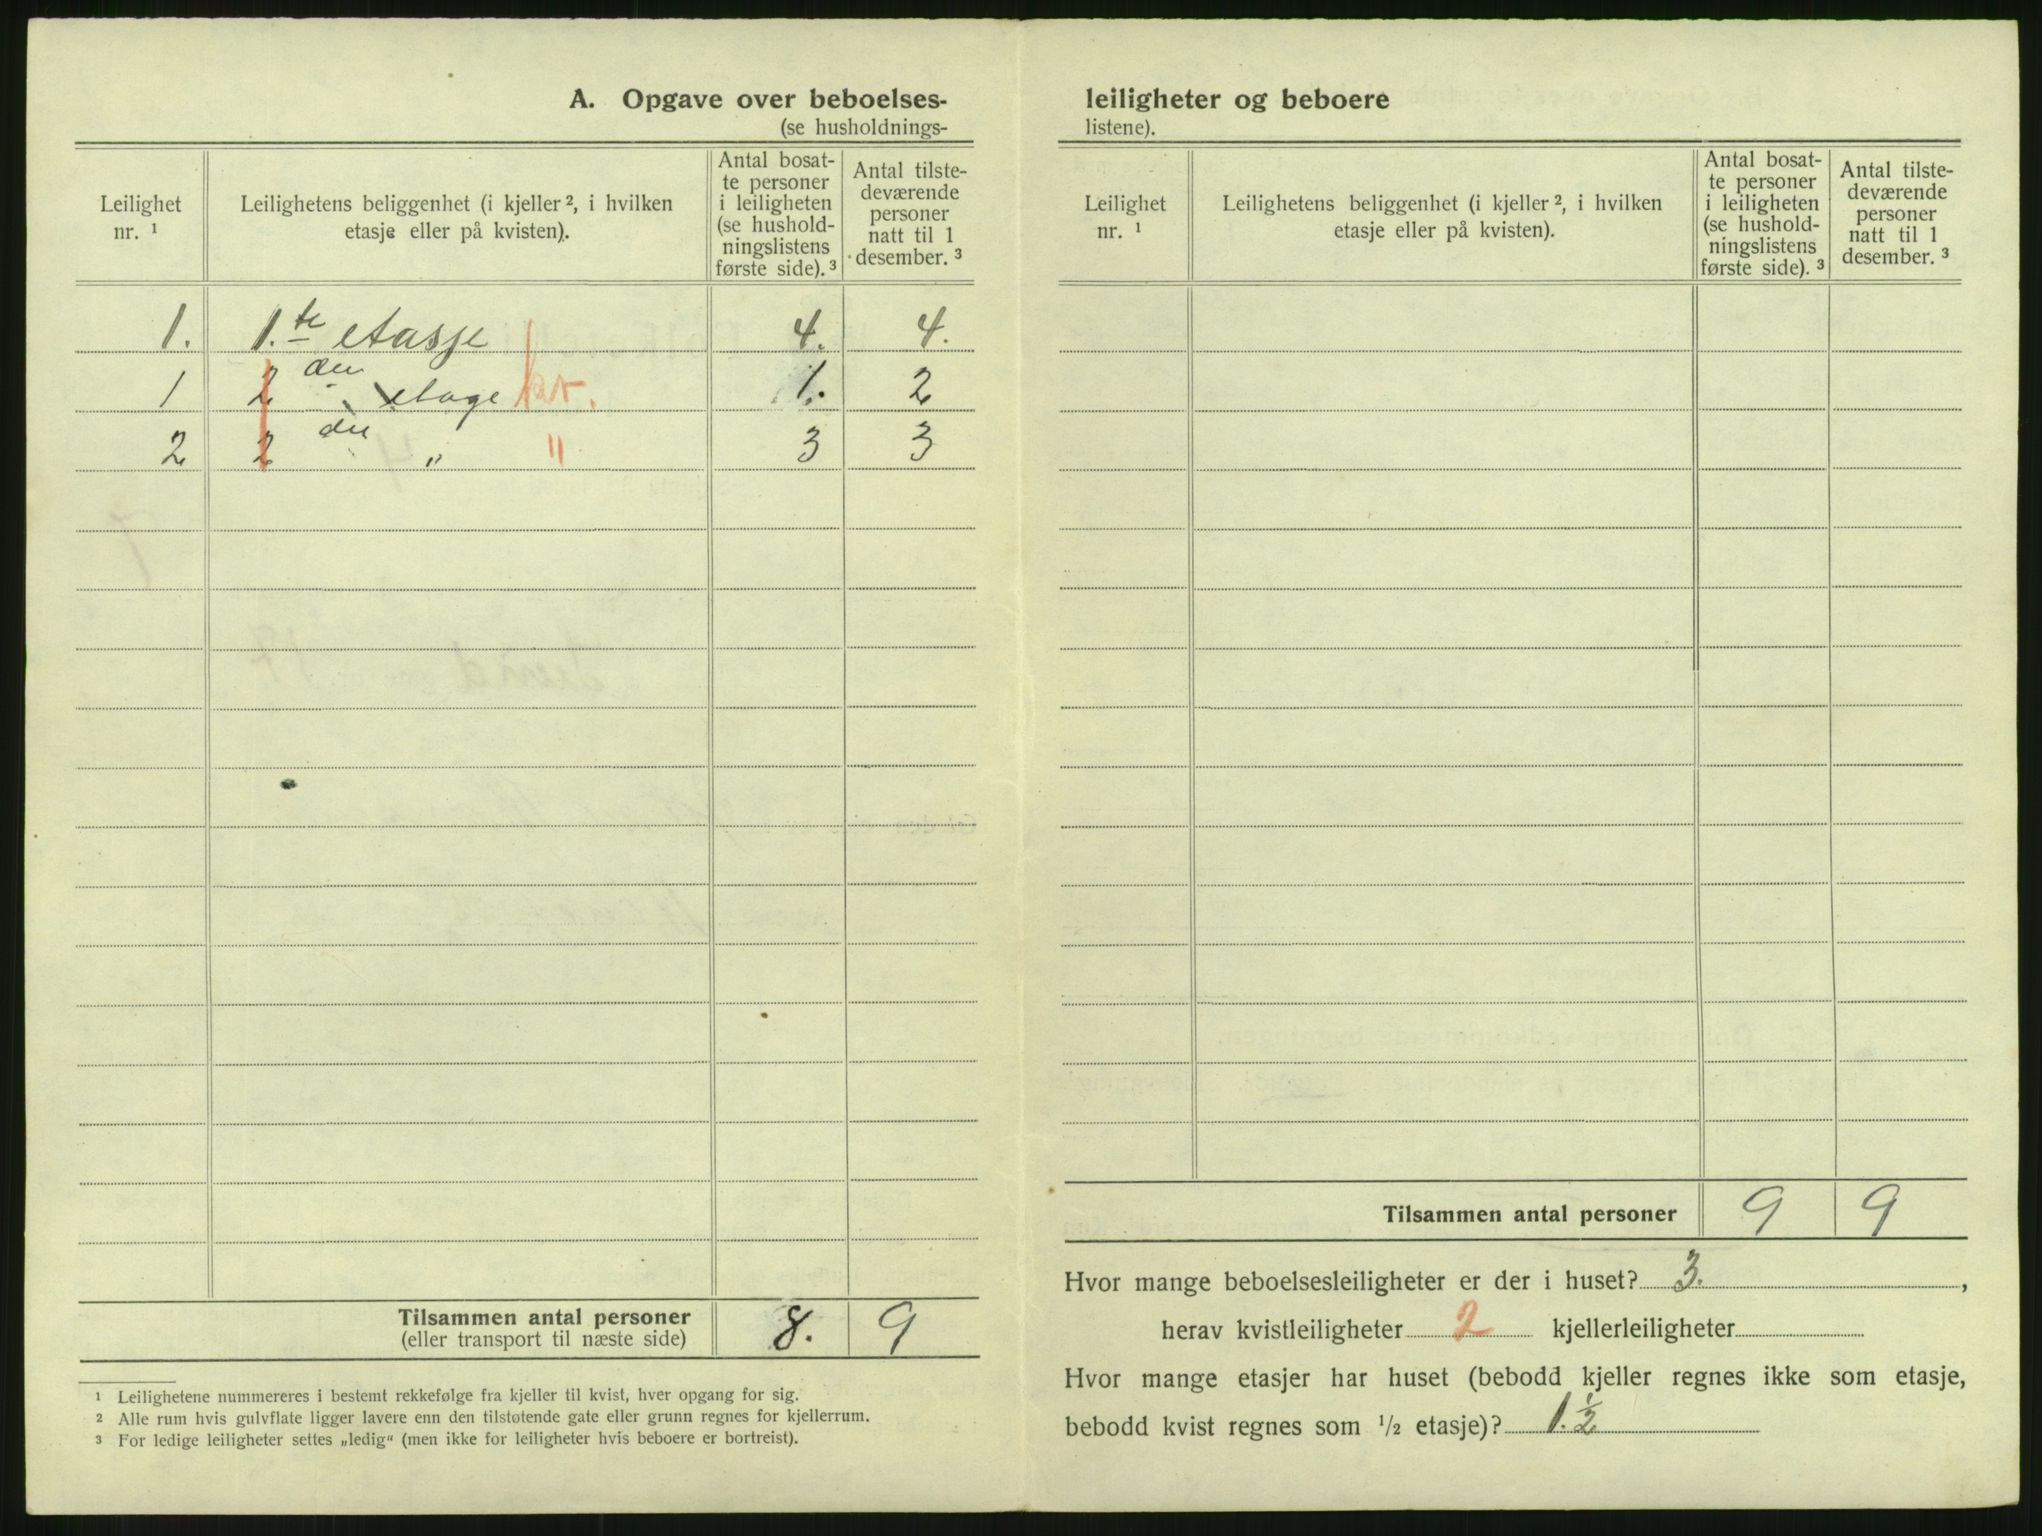 A. Opgave over beboelses-
(se husholdnings-
Leilighet nr. ¹
Leilighetens beliggenhet (i kjeller ², i hvilken etasje eller på kvisten).
Antal bosat-
te personer
i leiligheten
(se hushold-
ningslistens
første side). ³
Antal tilste-
deværende
personer
natt til 1
desember. ³
1. 1.te etasje 4. 4.
1 2 den etage kv. 1. 2
2 2 den " " 3 3
Tilsammen antal personer 8. 9
(eller transport til næste side)
¹ Leilighetene nummereres i bestemt rekkefølge fra kjeller til kvist, hver opgang for sig.
² Alle rum hvis gulvflate ligger lavere enn den tilstøtende gate eller grunn regnes for kjellerrum.
³ For ledige leiligheter settes „ledig“ (men ikke for leiligheter hvis beboere er bortreist).
leiligheter og beboere
listene).
Leilighet nr. ¹
Leilighetens beliggenhet (i kjeller ², i hvilken etasje eller på kvisten).
Antal bosat-
te personer
i leiligheten
(se hushold-
ningslistens
første side). ³
Antal tilste-
deværende
personer
natt til 1
desember. ³
Tilsammen antal personer 9 9
Hvor mange beboelsesleiligheter er der i huset? 3. ,
herav kvistleiligheter 2 kjellerleiligheter
Hvor mange etasjer har huset (bebodd kjeller regnes ikke som etasje,
bebodd kvist regnes som 1/2 etasje)? 1. 1/2